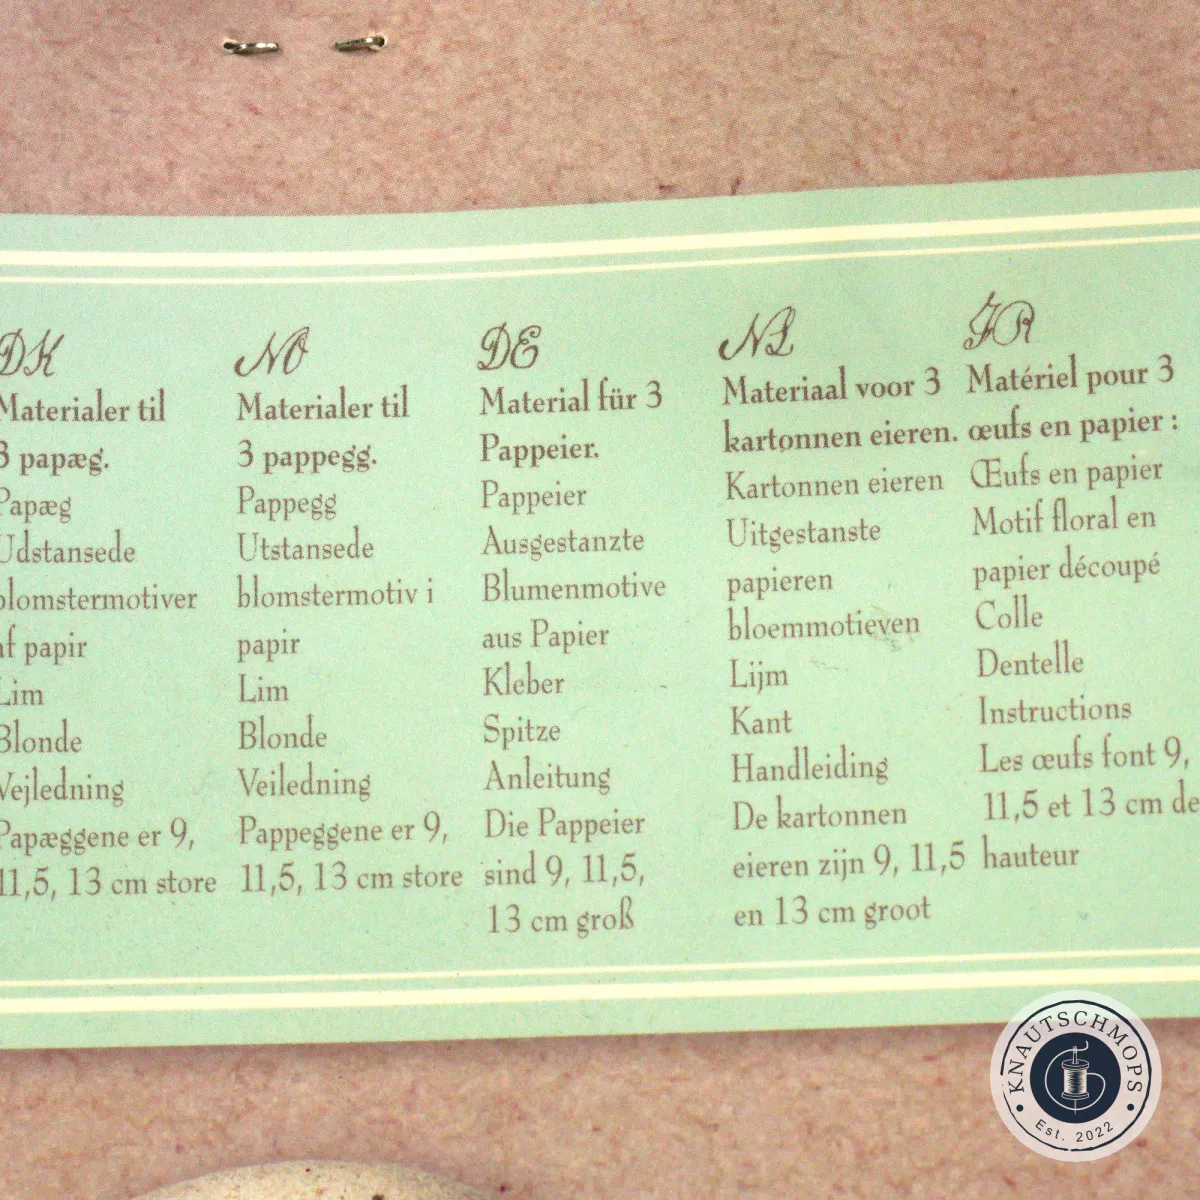 DK
Materialer til
3 papæg.
Papæg
Udstansede
blomstermotiver
af papir
Lim
Blonde
Vejledning
Papæggene er 9,
11,5, 13 cm store
NO
Materialer til
3 pappegg.
Pappegg
Utstansede
blomstermotiv i
papir
Lim
Blonde
Veiledning
Pappeggene er 9,
11,5, 13 cm store
DE
Material für 3
Pappeier.
Pappeier
Ausgestanzte
Blumenmotive
aus Papier
Kleber
Spitze
Anleitung
Die Pappeier
sind 9, 11,5,
13 cm groß
NL
Materiaal voor 3
kartonnen eieren.
Kartonnen eieren
Uitgestanste
papieren
bloemmotieven
Lijm
Kant
Handleiding
De kartonnen
eieren zijn 9, 11,5
en 13 cm groot
FR
Matériel pour 3
œufs en papier :
Œufs en papier
Motif floral en
papier découpé
Colle
Dentelle
Instructions
Les œufs font 9,
11,5 et 13 cm de
hauteur
KNAUTSCHMOPS
Est. 2022